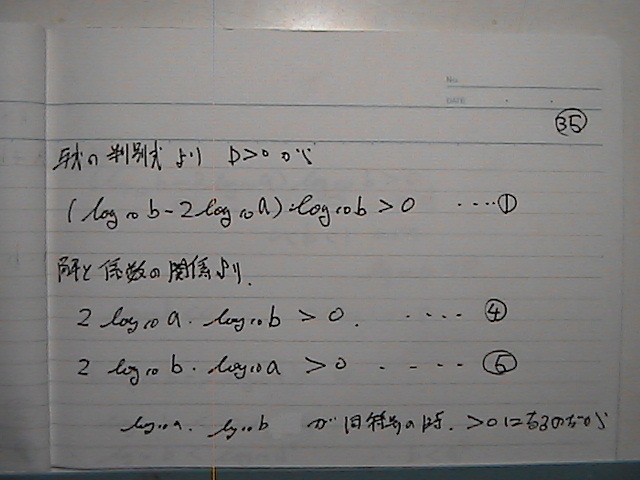 No.
DATE
㉟
与式の判別式より D>0 から
(log₁₀b-2log₁₀a)・log₁₀b>0 ････①
解と係数の関係より.
2 log₁₀a・log₁₀b>0. ････④
2 log₁₀b・log₁₀a>0 ･････⑤
log₁₀a. log₁₀b が同符号の時. >0になるのだから